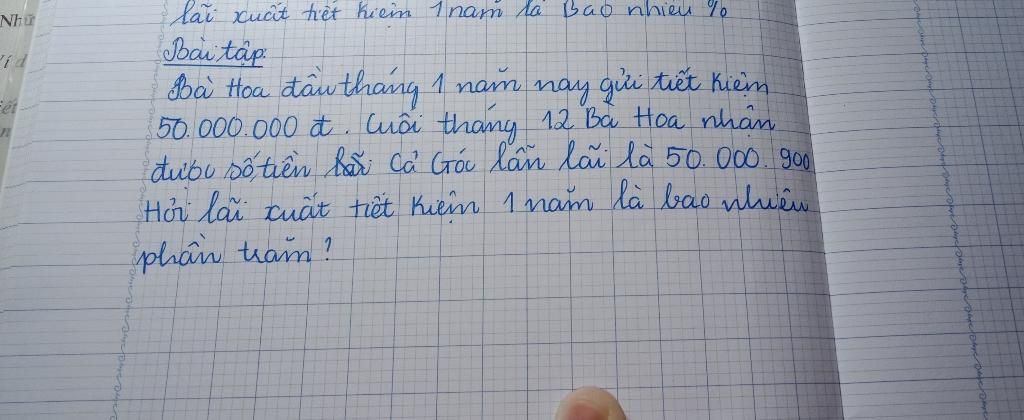 Nhữ
lãi xuất tiết kiệm 1 năm là Bao nhiêu %
Bài tập:
Bà Hoa đầu tháng 1 năm nay gửi tiết kiệm
50.000.000 đ. Cuối tháng 12 Bà Hoa nhận
được số tiền cả Gốc lẫn lãi là 50.000.900
Hỏi lãi xuất tiết kiệm 1 năm là bao nhiêu
phần trăm?